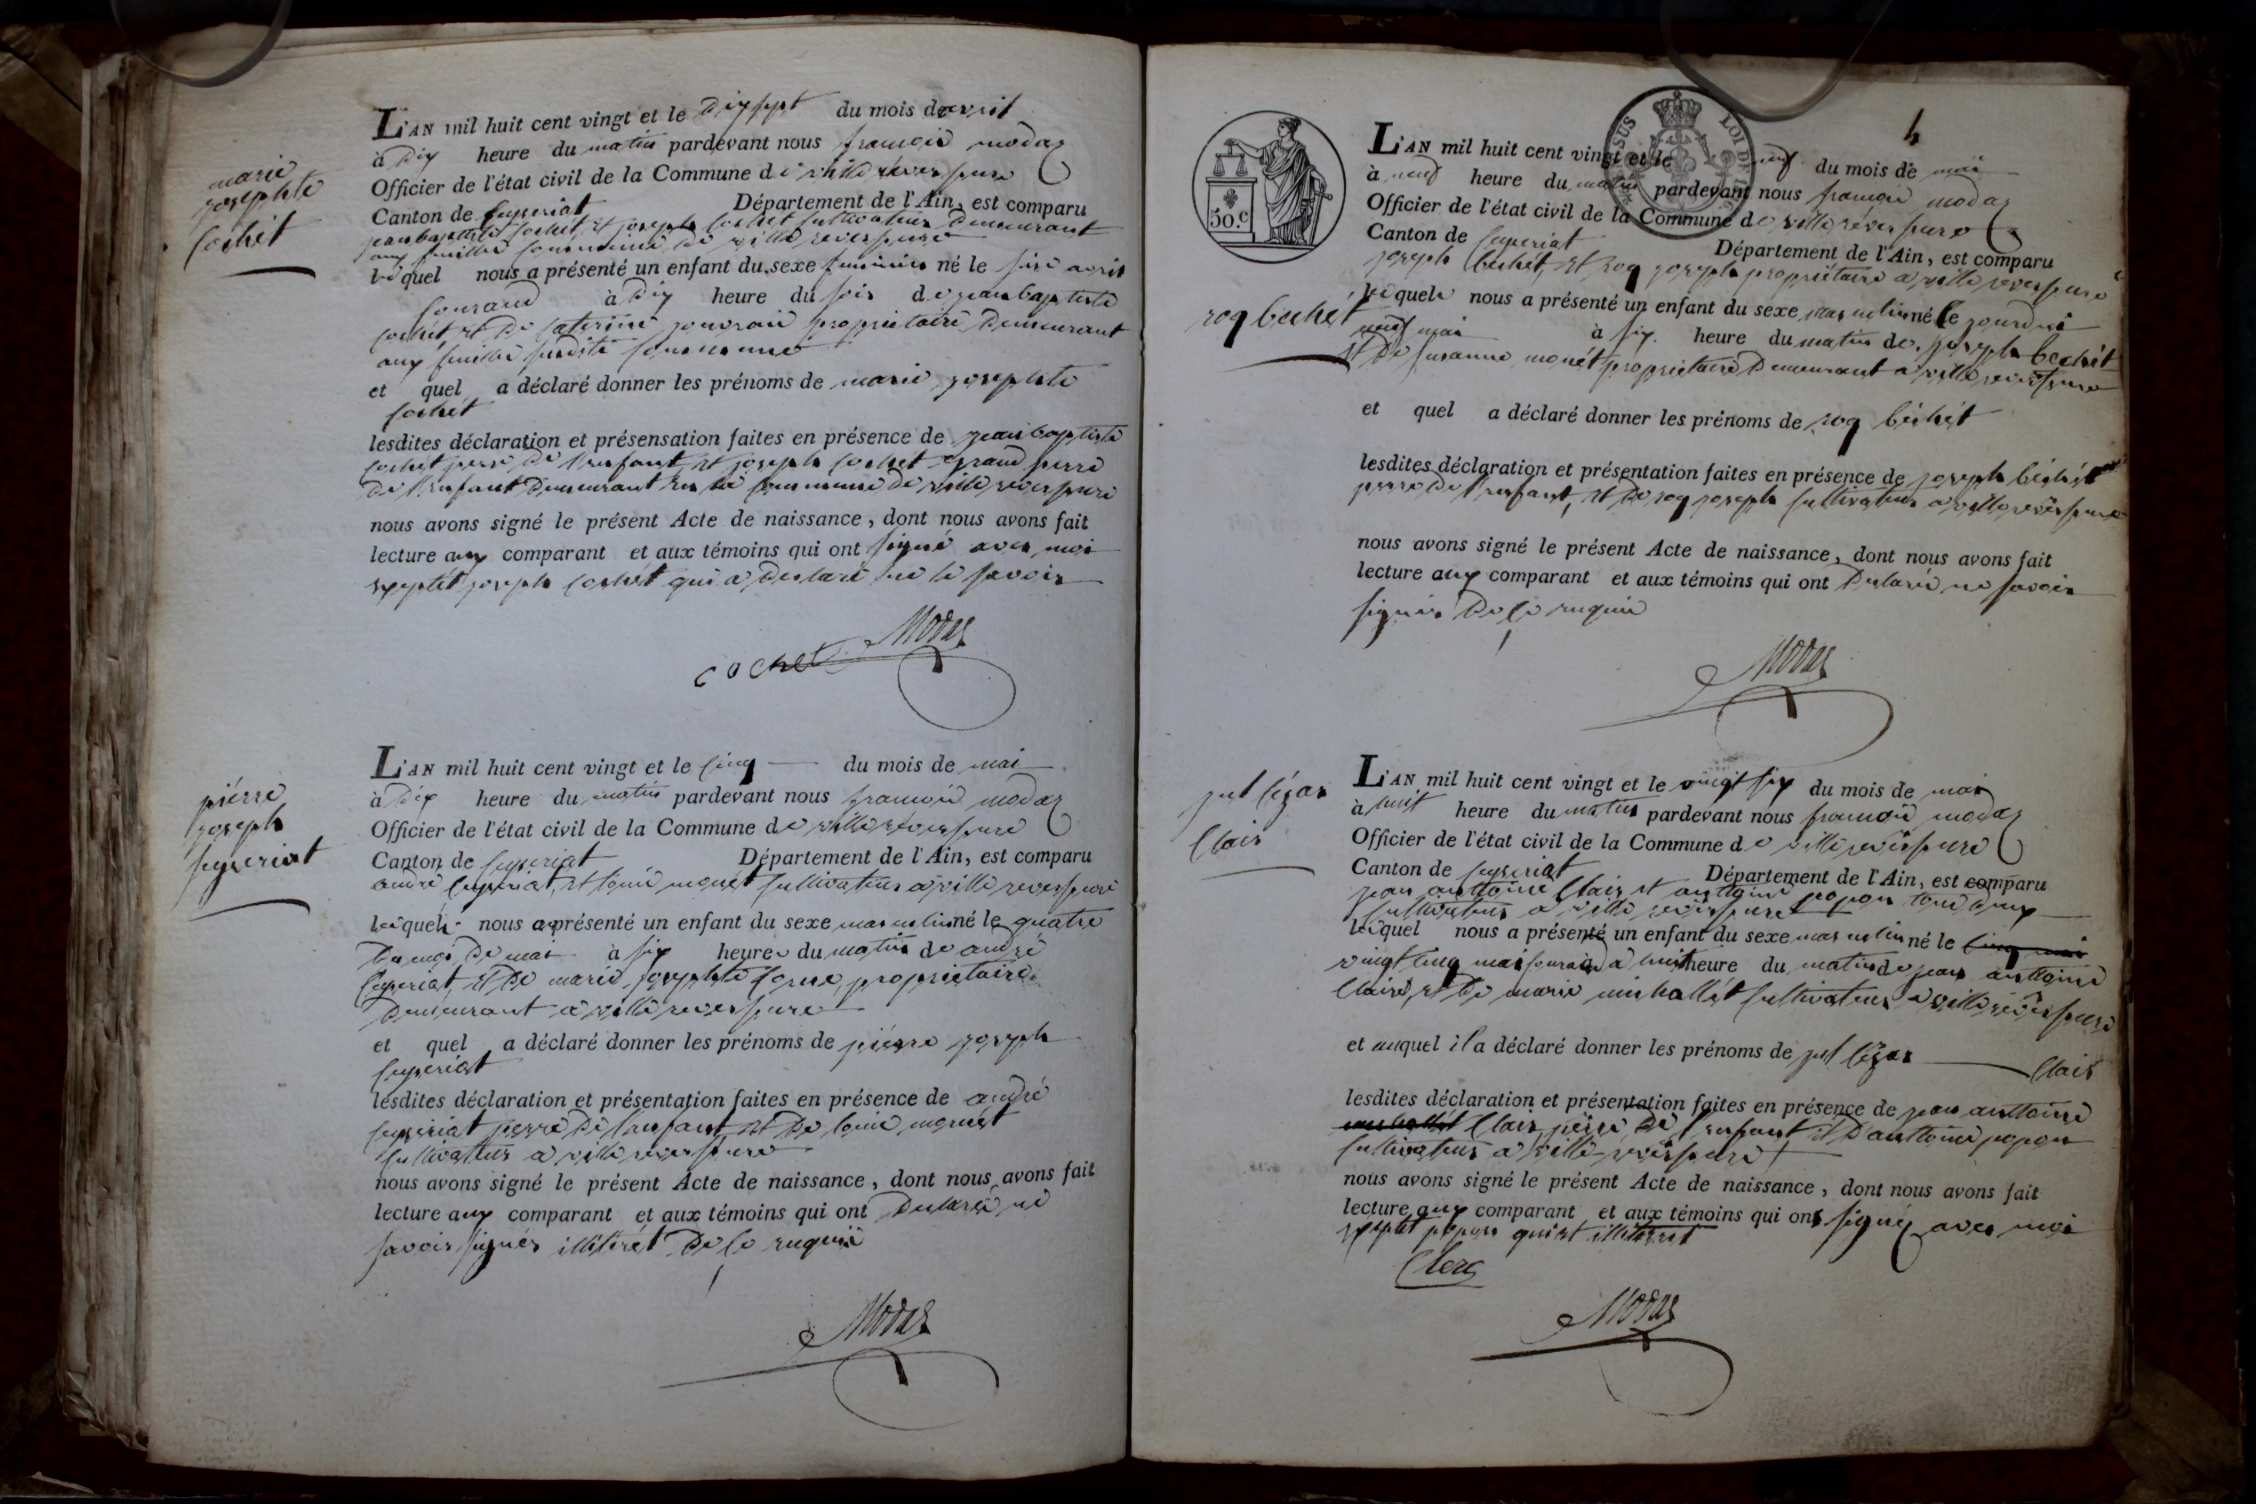 marie
josephte
Cochet
L'AN mil huit cent vingt et le dix sept du mois d'avril
à dix heure du matin pardevant nous françois modas
Officier de l'état civil de la Commune de ville reverssure
Canton de Ceyseriat Département de l'Ain, est comparu
jean baptiste Cochet et joseph Cochet Cultivateur demeurant
aux feuille Commune de ville reverssure
lequel nous a présenté un enfant du sexe feminin né le avril
Courand à dix heure du soir de jean baptiste
Cochet et de Caterine propriétaire demeurant
aux feuille susdite Commune
et quel a déclaré donner les prénoms de marie josephte
Cochet
lesdites déclaration et présensation faites en présence de jean baptiste
Cochet perre de l'enfant et joseph Cochet grand perre
de l'enfant demeurant en la Commune de ville reverssure
nous avons signé le présent Acte de naissance, dont nous avons fait
lecture aux comparant et aux témoins qui ont signé avec moi
exeptét joseph Cochet qui a declaré ne le savoir
cochet Modas
pierre
joseph
Ceyseriat
L'AN mil huit cent vingt et le Cinq du mois de mai
à dix heure du matin pardevant nous françois modas
Officier de l'état civil de la Commune de ville reverssure
Canton de Ceyseriat Département de l'Ain, est comparu
andré Ceyseriat et monét Cultivateur a ville reverssure
lequel nous a présenté un enfant du sexe masculin né le quatre
du moi de mai à six heure du matin de andré
Ceyseriat et de marie josephte propriétaire
demeurant a ville reverssure
et quel a déclaré donner les prénoms de pierre joseph
Ceyseriat
lesdites déclaration et présentation faites en présence de andré
Ceyseriat perre de l'enfant et de monét
Cultivateur a ville reverssure
nous avons signé le présent Acte de naissance, dont nous avons fait
lecture aux comparant et aux témoins qui ont declaré ne
savoir signér illitérét de ce requie
Modas
4
50.c
SUS LOI DE
roq bechét
L'AN mil huit cent vingt et le neuf du mois de mai
à neuf heure du matin pardevant nous françois modas
Officier de l'état civil de la Commune de ville reverssure
Canton de Ceyseriat Département de l'Ain, est comparu
joseph bechét et roq joseph propriétaire a ville reverssure
lequel nous a présenté un enfant du sexe masculin né le jourdui
neuf mai à six heure du matin de joseph bechét
et de susanne monét propriétaire demeurant a ville reverssure
et quel a déclaré donner les prénoms de roq béchét
lesdites déclaration et présentation faites en présence de joseph béchét
perre de l'enfant, et de roq joseph Cultivateur a ville reverssure
nous avons signé le présent Acte de naissance, dont nous avons fait
lecture aux comparant et aux témoins qui ont declaré ne savoir
signér de ce requie
Modas
jul Cézar
Clair
L'AN mil huit cent vingt et le vingt six du mois de mai
à huit heure du matin pardevant nous françois modas
Officier de l'état civil de la Commune de ville reverssure
Canton de Ceyseriat Département de l'Ain, est comparu
jean anttoine Clair et anttoine popon tous deux
Cultivateur a ville reverssure
lequel nous a présenté un enfant du sexe masculin né le Cinq mai
vingt Cinq mai Courand à huit heure du matin de jean anttoine
Claire et de marie michallét Cultivateur a ville reverssure
et auquel il a déclaré donner les prénoms de jul Cézar Clair
lesdites déclaration et présentation faites en présence de jean anttoine
michallét Clair perre de l'enfant et d'anttoine popon
Cultivateur a ville reverssure
nous avons signé le présent Acte de naissance, dont nous avons fait
lecture aux comparant et aux témoins qui ont signé avec moi
exeptét popon qui et illiterét
Clerc
Modas